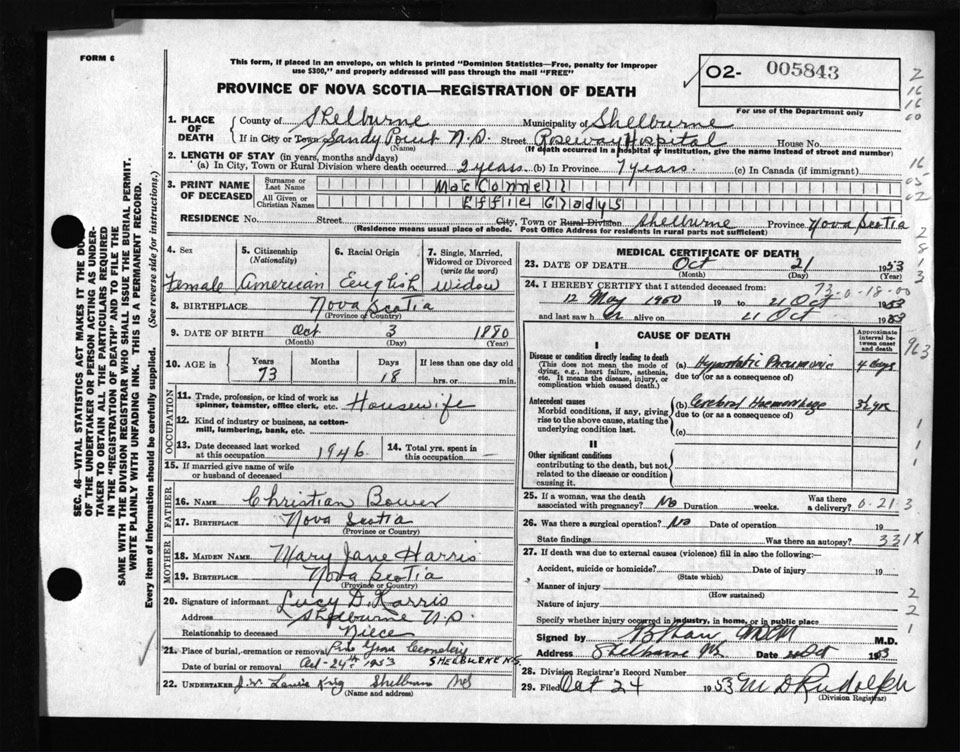 FORM 6
This form, if placed in an envelope, on which is printed "Dominion Statistics—Free, penalty for improper
use $300," and properly addressed will pass through the mail "FREE"
PROVINCE OF NOVA SCOTIA—REGISTRATION OF DEATH
O2- 005843
For use of the Department only
1. PLACE OF DEATH
County of Shelburne Municipality of Shelburne
If in City or Town Sandy Point N.S. Street Roseway Hospital House No.
(Name) (If death occurred in a hospital or institution, give the name instead of street and number)
2. LENGTH OF STAY (in years, months and days)
(a) In City, Town or Rural Division where death occurred 2 years (b) In Province 7 years. (c) In Canada (if immigrant)
3. PRINT NAME OF DECEASED
Surname or Last Name MacConnell
All Given or Christian Names Effie Gladys
RESIDENCE No. Street City, Town or Rural Division Shelburne Province Nova Scotia
(Residence means usual place of abode. Post Office Address for residents in rural parts not sufficient)
4. Sex Female
5. Citizenship (Nationality) American
6. Racial Origin English
7. Single, Married, Widowed or Divorced (write the word) Widow
8. BIRTHPLACE Nova Scotia
(Province or Country)
9. DATE OF BIRTH Oct 3 1880
(Month) (Day) (Year)
10. AGE in Years 73 Months Days 18 If less than one day old hrs. or min.
OCCUPATION
11. Trade, profession, or kind of work as spinner, teamster, office clerk, etc. Housewife
12. Kind of industry or business, as cotton-mill, lumbering, bank, etc.
13. Date deceased last worked at this occupation 1946
14. Total yrs. spent in this occupation —
15. If married give name of wife or husband of deceased
FATHER
16. NAME Christian Bower
17. BIRTHPLACE Nova Scotia
(Province or Country)
MOTHER
18. MAIDEN NAME Mary Jane Harris
19. BIRTHPLACE Nova Scotia
(Province or Country)
20. Signature of informant Lucy D. Harris
Address Shelburne N.S.
Relationship to deceased Niece
21. Place of burial, cremation or removal Grove Cemetery
Date of burial or removal Oct-24th 1953 SHELBURNE N.S.
22. UNDERTAKER
(Name and address)
MEDICAL CERTIFICATE OF DEATH
23. DATE OF DEATH Oct 21 1953
(Month) (Day) (Year)
73-0-18-00
24. I HEREBY CERTIFY that I attended deceased from:
12 May 1950 19 to 21 Oct 1953
and last saw her alive on 21 Oct 1953
CAUSE OF DEATH
Approximate interval between onset and death
I
Disease or condition directly leading to death
(This does not mean the mode of dying, e.g., heart failure, asthenia, etc. It means the disease, injury, or complication which caused death.)
(a) Hypostatic Pneumonia 4 days
due to (or as a consequence of)
Antecedent causes
Morbid conditions, if any, giving rise to the above cause, stating the underlying condition last.
(b) Cerebral Haemorrhage 3½ yrs
due to (or as a consequence of)
(c)
II
Other significant conditions
contributing to the death, but not related to the disease or condition causing it.
25. If a woman, was the death associated with pregnancy? No Duration weeks. Was there a delivery? 0-21
26. Was there a surgical operation? No Date of operation 19
State findings Was there an autopsy? 331X
27. If death was due to external causes (violence) fill in also the following:—
Accident, suicide or homicide? Date of injury 19
(State which)
Manner of injury
(How sustained)
Nature of injury
Specify whether injury occurred in industry, in home, or in public place
Signed by M.D.
Address Shelburne NS Date Oct 1953
28. Division Registrar's Record Number
29. Filed Oct 24 1953 M D Rudolph
(Division Registrar)
SEC. 46—VITAL STATISTICS ACT MAKES IT THE DUTY
OF THE UNDERTAKER OR PERSON ACTING AS UNDER-
TAKER TO OBTAIN ALL THE PARTICULARS REQUIRED
IN THE "REGISTRATION OF DEATH" AND TO FILE THE
SAME WITH THE DIVISION REGISTRAR WHO SHALL ISSUE THE BURIAL PERMIT.
WRITE PLAINLY WITH UNFADING INK. THIS IS A PERMANENT RECORD.
Every item of information should be carefully supplied. (See reverse side for instructions.)